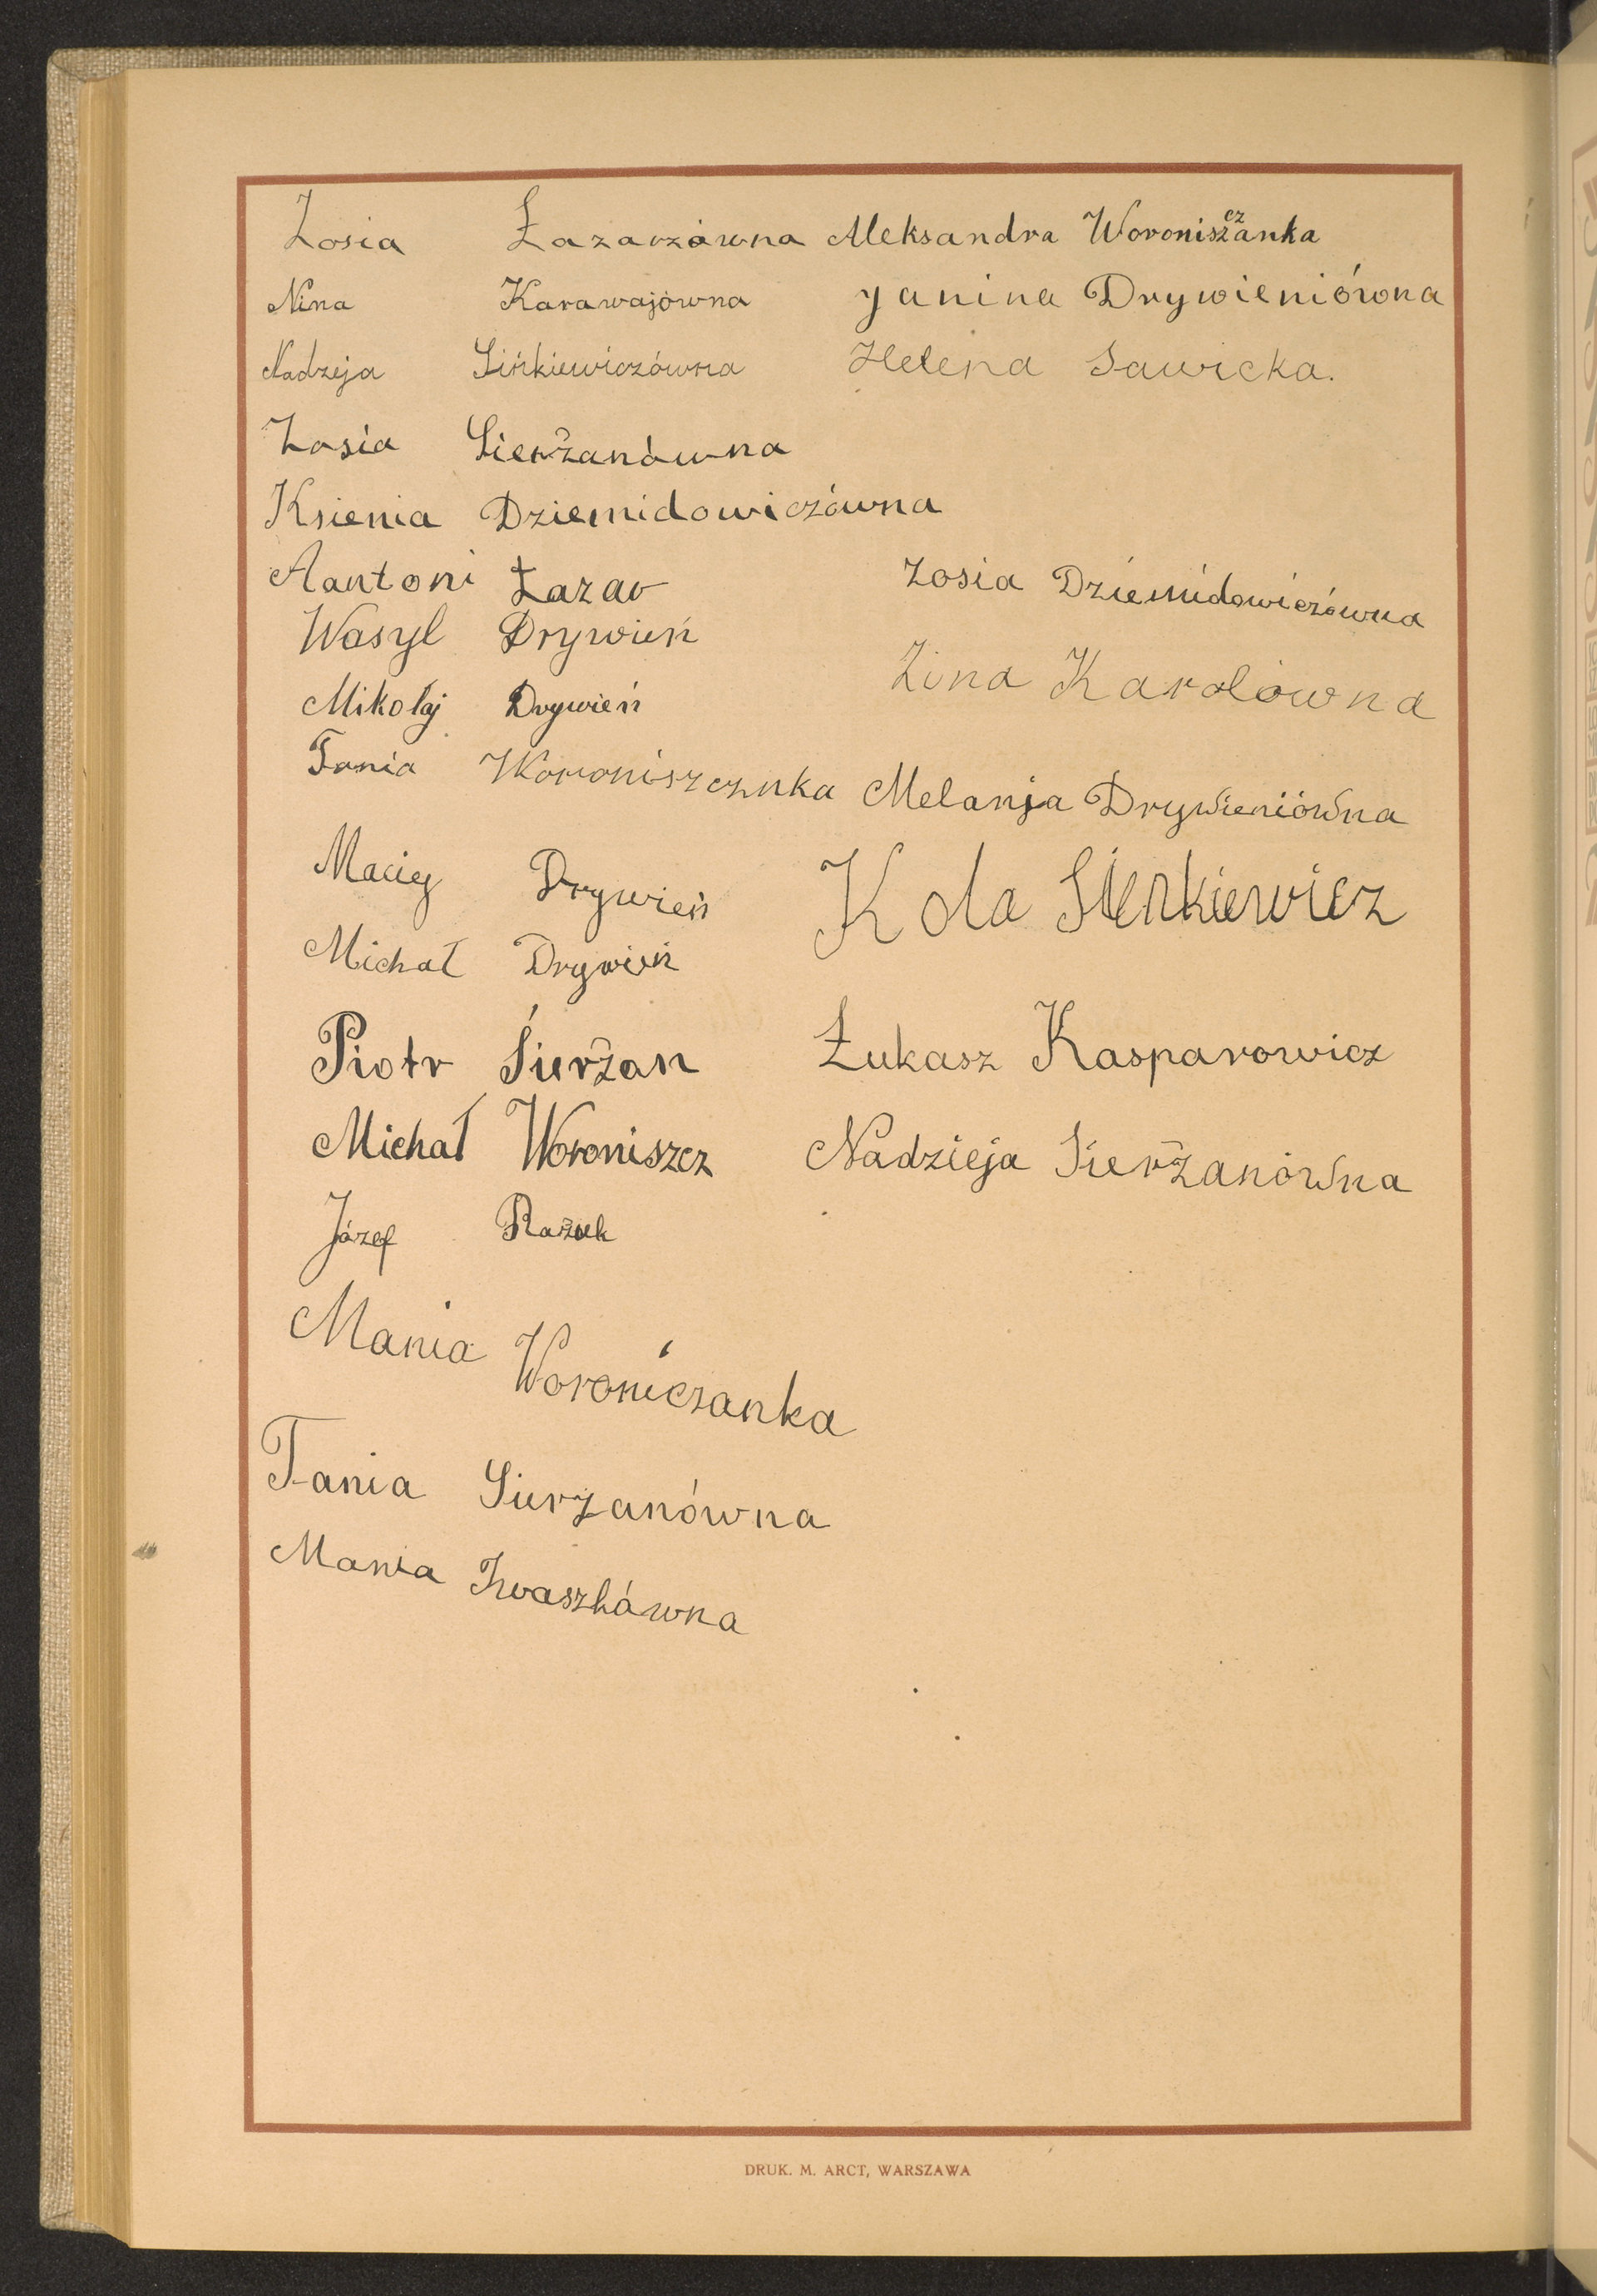 Zosia Łazarzówna Aleksandra Woroniszczanka
Nina Karawajówna Janina Drywieniówna
Nadzeja Sińkiewiczówna Helena Sawicka.
Zosia Sierżanówna
Ksienia Dziemidowiczówna
Aantoni Łazar Zosia Dziemidowiczówna
Wasyl Drywień
Zina Karolówna
Mikołaj Drywień
Tania Woroniszcznka Melanja Drywieniówna
Maciej Drywień Kola Sienkiewicz
Michał Drywień
Piotr Sierżan Łukasz Kasparowicz
Michał Woroniszcz Nadzieja Sierżanówna
Józef Rażuk
Mania Woroniczanka
Tania Sierżanówna
Mania Iwaszkówna
DRUK. M. ARCT, WARSZAWA